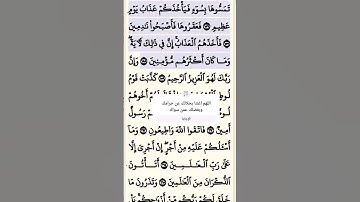 تَمَسُّوهَا بِسُوٓءٍ فَيَأْخُذَكُمْ عَذَابُ يَوْمٍ
عَظِيمٍ فَعَقَرُوهَا فَأَصْبَحُوا۟ نَـٰدِمِينَ
فَأَخَذَهُمُ ٱلْعَذَابُ ۗ إِنَّ فِى ذَٰلِكَ لَـَٔايَةً ۖ
وَمَا كَانَ أَكْثَرُهُم مُّؤْمِنِينَ وَإِنَّ
رَبَّكَ لَهُوَ ٱلْعَزِيزُ ٱلرَّحِيمُ كَذَّبَتْ قَوْمُ
لُوطٍ أَخُوهُمْ
اللهم اغننا بحلالك عن حرامك
وبفضلك عمن سواك
لُوطٌ رَسُولٌ
أَمِينٌ فَٱتَّقُوا۟ ٱللَّهَ وَأَطِيعُونِ وَمَآ
أَسْـَٔلُكُمْ عَلَيْهِ مِنْ أَجْرٍ ۖ إِنْ أَجْرِىَ إِلَّا
عَلَىٰ رَبِّ ٱلْعَـٰلَمِينَ أَتَأْتُونَ
ٱلذُّكْرَانَ مِنَ ٱلْعَـٰلَمِينَ وَتَذَرُونَ مَا
خَلَقَ لَكُمْ رَبُّكُم مِّنْ أَزْوَٰجِكُم